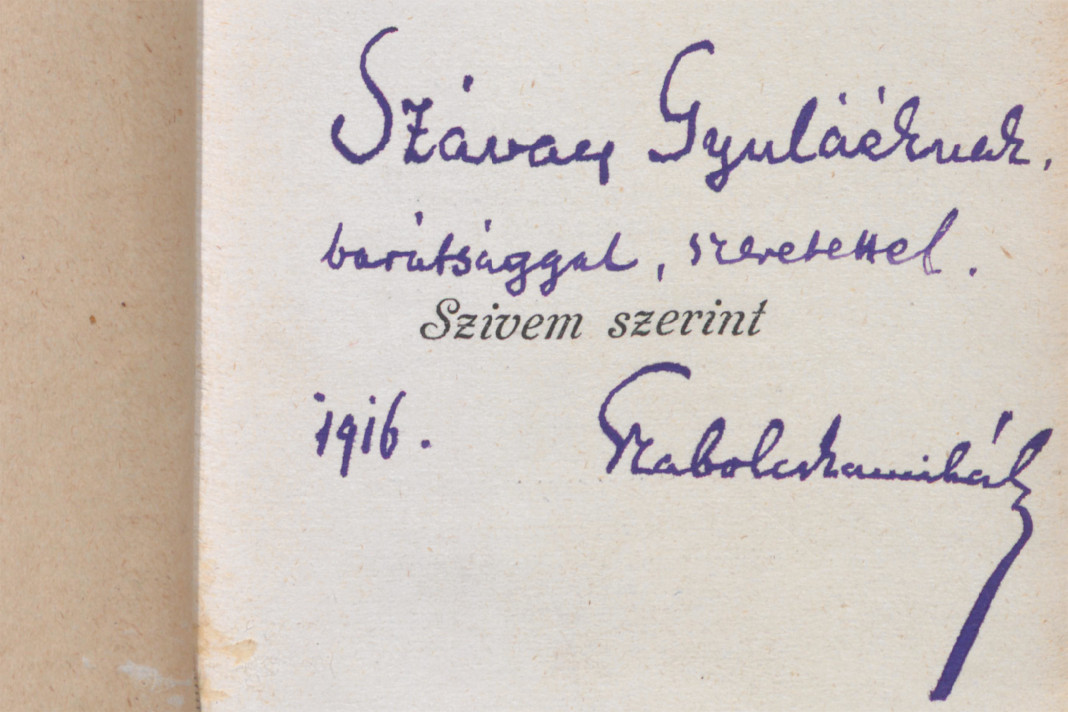 Szávay Gyuláéknak,
barátsággal, szeretettel.
Szivem szerint
1916. Szabolcskamihály